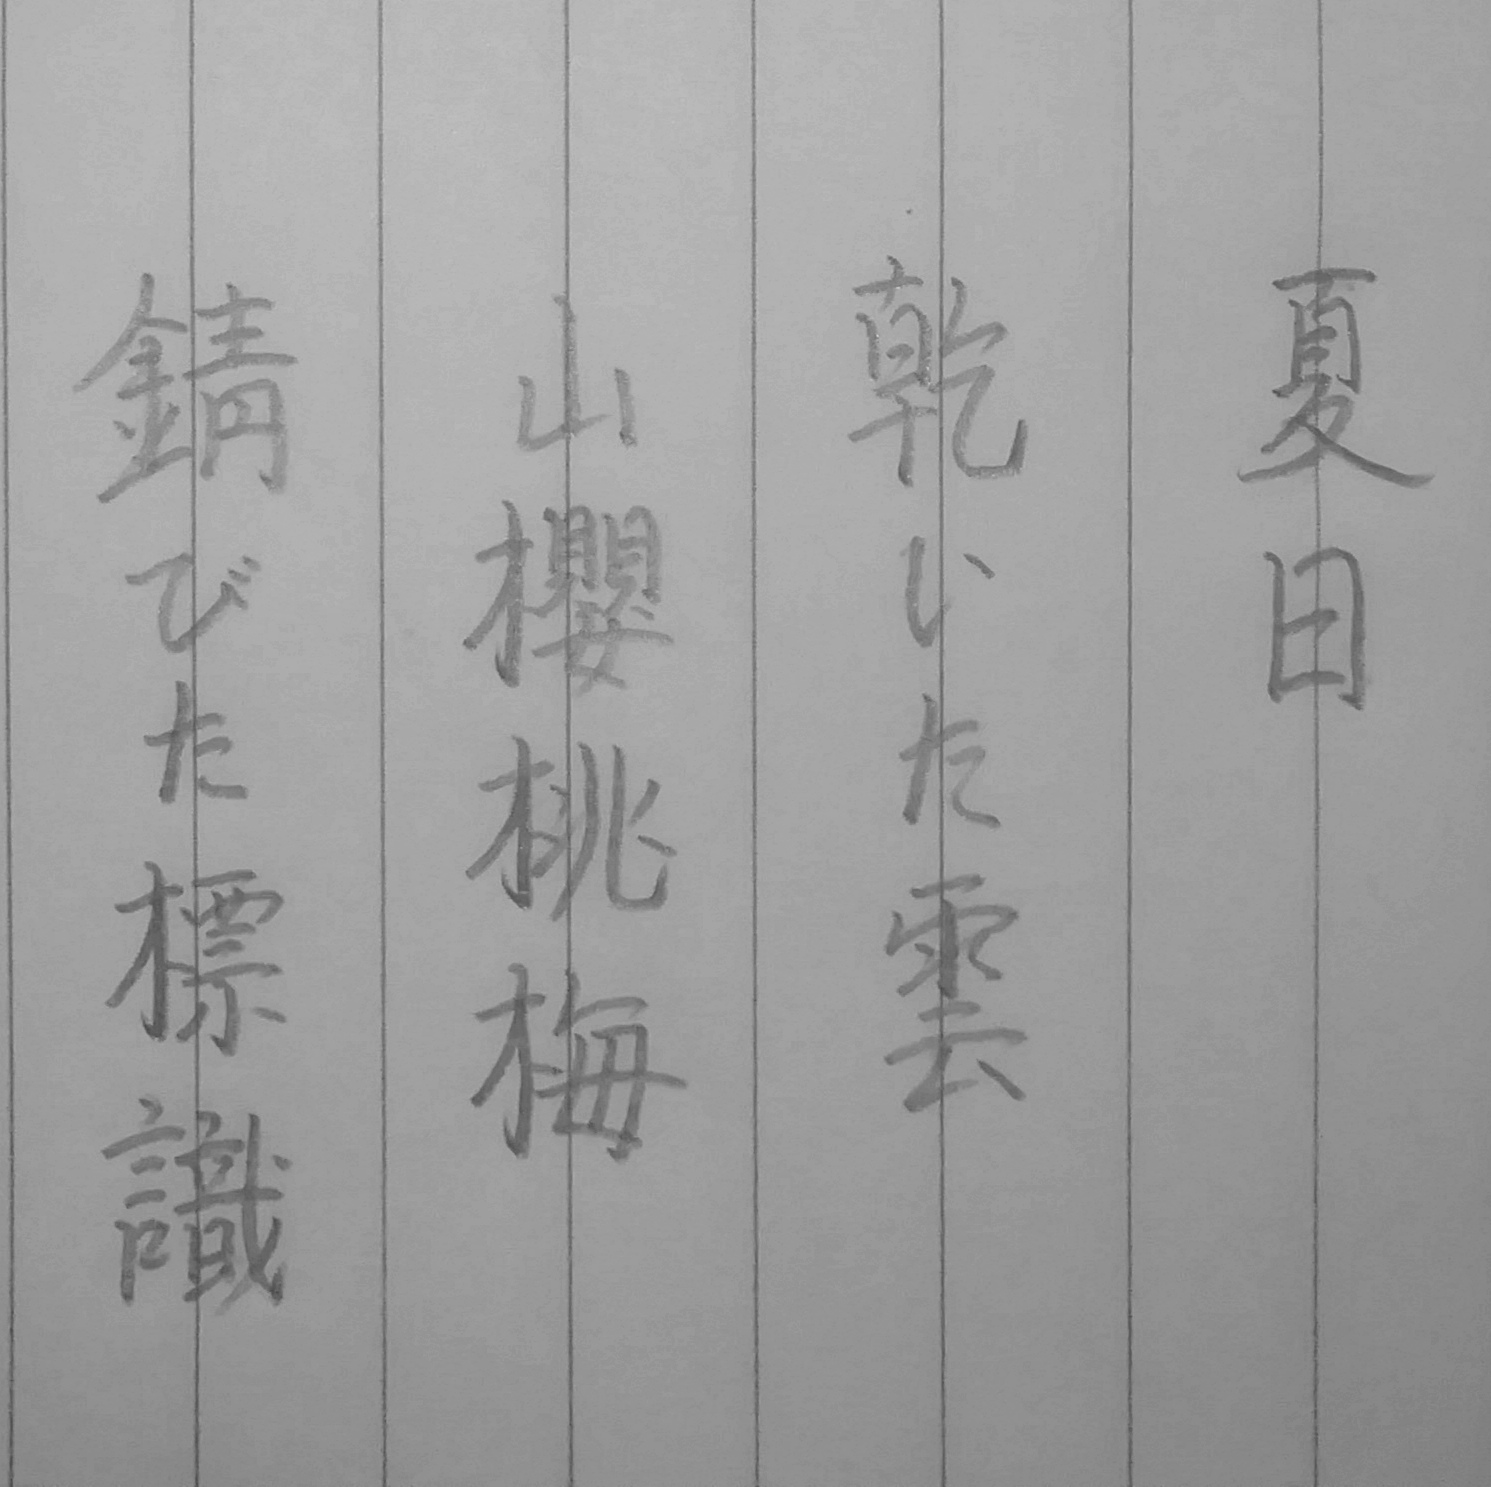 夏日
乾いた雲
山櫻桃梅
錆びた標識